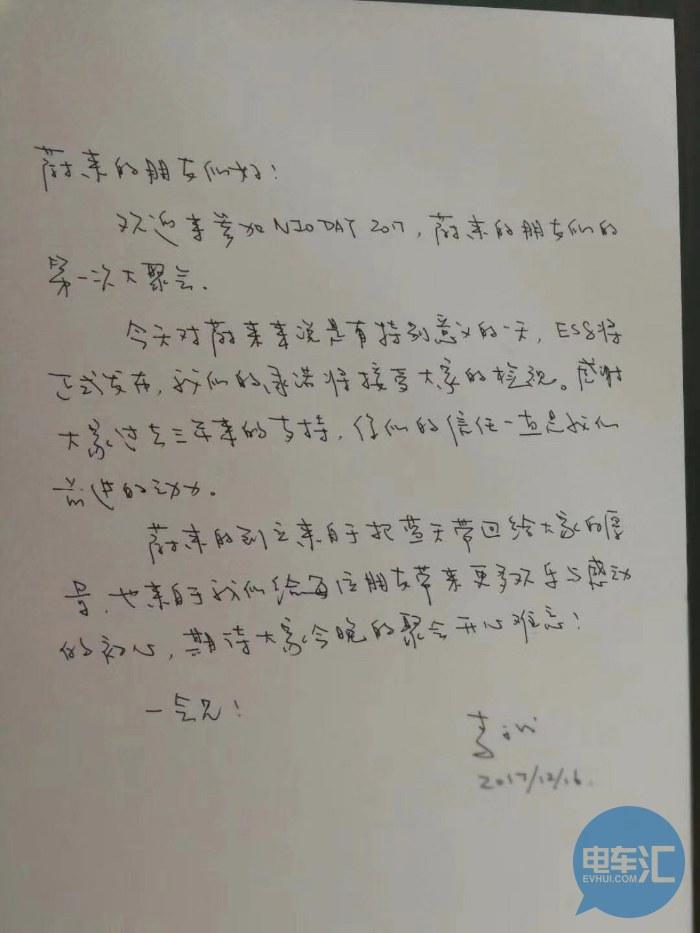 蔚来的朋友们好！
欢迎来参加NIO DAY 2017，蔚来的朋友们的
第一次大聚会.
今天对蔚来来说是有特别意义的一天，ES8将
正式发布，我们的承诺将接受大家的检视。感谢
大家过去三年来的支持，你们的信任一直是我们
前进的动力。
蔚来的创立来自于把蓝天带回给大家的愿
景，也来自于我们给每位朋友带来更多欢乐与感动
的初心，期待大家今晚的聚会开心难忘！
一会见！
李斌
2017/12/16.
电车汇
EVHUI.COM